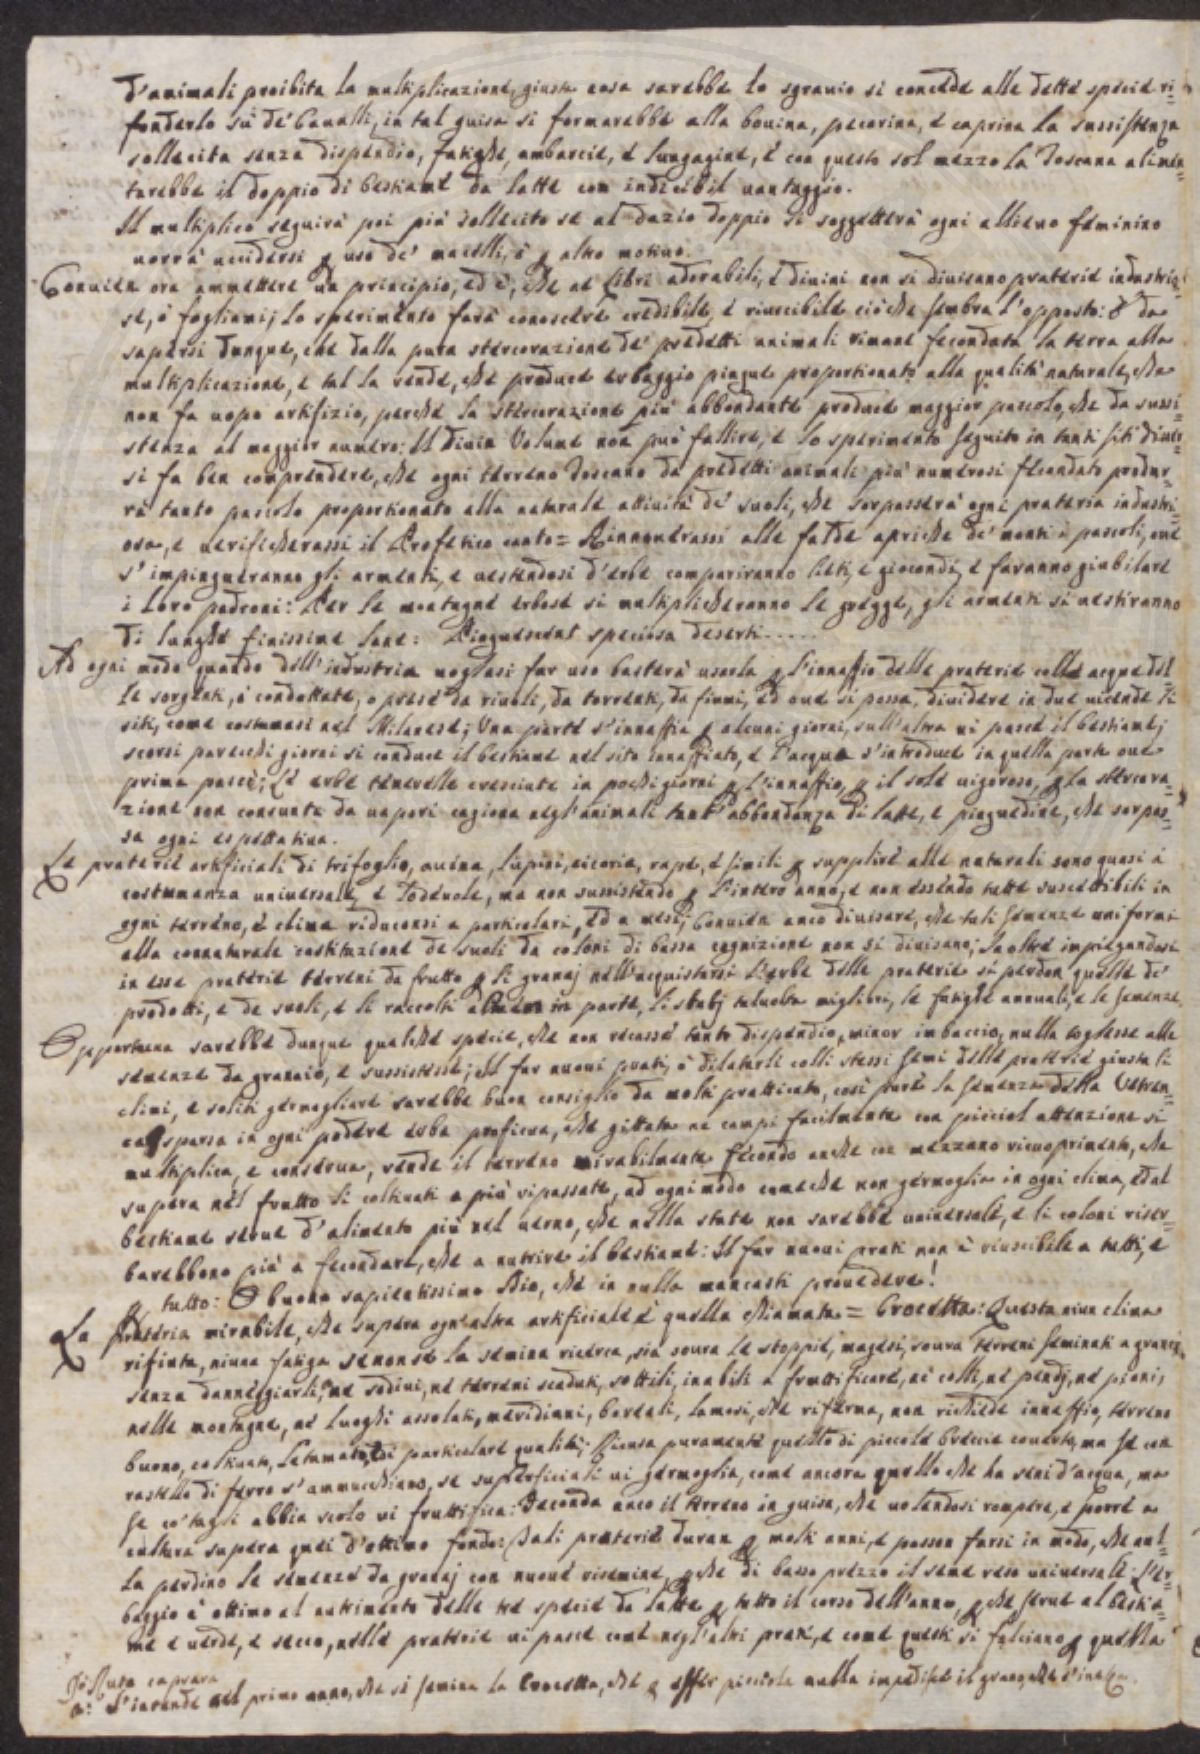 d'animali proibita la multiplicazione, giusta cosa sarebbe lo sgravio si concede alle dette specie ri=
fonderlo sù de' Cavalli, in tal guisa si formarebbe alla bovina, pecorina, e caprina la sussistenza
sollecita senza dispendio, fatighe, ambascie, e lungagine, e con questo sol mezzo la Toscana alimen=
tarebbe il doppio di bestiame da latte con indicibil vantaggio.
Il multiplico seguirà poi più sollecito se al dazio doppio si soggetterà ogni allievo feminino
vorrà uccidersi p uso de' macelli, ò p altro motivo.
Convien ora ammettere un principio, ed è, che ne libri adorabili, e divini non si divisano praterie industrio=
se, ò fogliami; lo sperimento farà conoscere credibile, e riuscibile ciò che sembra l'opposto: è da
sapersi dunque, che dalla pura stercorazione de' predetti animali rimane fecondata la terra alla
multiplicazione, e tal la rende, che produce erbaggio pingue proportionato alla qualità naturale, che
non fa uopo artifizio, perche la stercorazione più abbondante produce maggior pascolo, che da sussi=
stenza al maggior numero: Il divin Volume non può fallire, e lo sperimento seguito in tanti siti diver=
si fa ben comprendere, che ogni terreno Toscano da predetti animali più numerosi fecondato produr=
rà tanto pascolo proportionato alla naturale attività de' suoli, che sorpasserà ogni prateria industri=
osa, e verificherassi il Profetico canto = Rinnoverassi alle falde apriche de' monti i pascoli, ove
s'impingueranno gli armenti, e vestendosi d'erbe compariranno lieti, e giocondi, e faranno giubilare
i loro padroni: Per le montagne erbose si multiplicheranno le gregge, gli armenti si vestiranno
di lunghe finissime lane: Pinguescent speciosa deserti.....
Ad ogni modo quando dell'industria vogliasi far uso basterà usarla p l'innaffio delle praterie colle acque del
le sorgenti, ò condottate, o prese da rivoli, da torrenti, da fiumi, ed ove si possa, dividere in due vicende li
siti, come costumasi nel Milanese; Una parte s'innaffia p alcuni giorni, sull'altra vi pasce il bestiame;
scorsi parecchi giorni si conduce il bestiame nel sito innaffiato, e l'acqua s'introduce in quella parte ove
prima pascè; Le erbe tenerelle cresciute in pochi giorni p l'innaffio, p il sole vigoroso, p la stercora=
zione non consunta da vapori cagiona negl'animali tant'abbondanza di latte, e pinguedine, che sorpas=
sa ogni espettativa.
Le praterie artificiali di trifoglio, avena, lupini, cicorie, rape, e simili p supplire alle naturali sono quasi à
costumanza universale, e lodevole, ma non sussistendo p l'intero anno, e non essendo tutte suscettibili in
ogni terreno, e clima riduconsi a particolari, ed a mesi; Convien anco divisare, che tali semenze uniformi
alla connaturale costituzione de suoli da coloni di bassa cognizione non si divisano; Inoltre impiegandosi
in esse praterie terreni da frutto p li granaj nell'acquistarsi l'erbe delle praterie si perdon quelle de'
prodotti, e de suoli, e li raccolti almen in parte, li stabj talvolta migliori, le fatighe annuali, e le semenze.
Opportuna sarebbe dunque qualche specie, che non recasse tanto dispendio, minor imbaccio, nulla toglesse alle
semenze da granaio, e sussistesse; Il far nuovi prati, ò dilatarli colli stessi semi delle praterie giusta li
climi, e soliti germogliare sarebbe buon consiglio da molti pratticato, così pure la semenza della Vetren=
ca sparsa in ogni podere erba proficua, che gittata ne campi facilmente con picciol attenzione si
multiplica, e conserva, rende il terreno mirabilmente fecondo anche coe mezzano ricuoprimento, che
supera nel frutto li coltivati a più ripassate, ad ogni modo comeche non germoglia in ogni clima, ed al
bestiame serve d'alimento più nel verno, che nella state non sarebbe universale, e li coloni riser=
barebbono più a fecondare, che a nutrire il bestiame: Il far nuovi prati non è riuscibile a tutti, e
p tutto: O buono sapientissimo Dio, che in nulla mancasti provedere!
La Prateria mirabile, che supera ogn'altra artificiale è quella chiamata = Crocetta: Questa niun clima
rifiuta, niuna fatiga senonse la semina ricerca, sia sovra le stoppie, magesi, sovra terreni seminati a grani
senza danneggiarli, ne sodivi, ne terreni scaduti, sottili, inabili a fruttificare, ai colli, ne pendj, ne piani,
nelle montagne, ne luoghi assolati, meridiani, boreali, lamosi, che riferma, non richiede innaffio, terreno
buono, coltivato, letamato, di particolare qualità; Ricusa puramente quello di piccole breccie coverto, ma se con
rastello di ferro s'ammucchiano, se superficiali vi germoglia, come ancora quello che ha seni d'acqua, ma
se co' tagli abbia scolo vi fruttifica: Feconda anco il terreno in guisa, che volendosi rompere, e porre a
cultura supera quei d'ottimo fondo: Tali praterie duran p molti anni, e posson farsi in modo, che nul=
la perdino le semenze da granaj con nuove risemine, p che di basso prezzo il seme reso universale: L'er=
baggio è ottimo al nutrimento delle tre specie da latte p tutto il corso dell'anno, p che serve al bestia=
me e verde, e secco, nelle praterie vi pasce come negl'altri prati, e come questi si falciano p quella
Ruta capraria
a: S'intende nel primo anno, che si semina la Crocetta, che p esser picciola nulla impedisce il grano, che s'inalza.